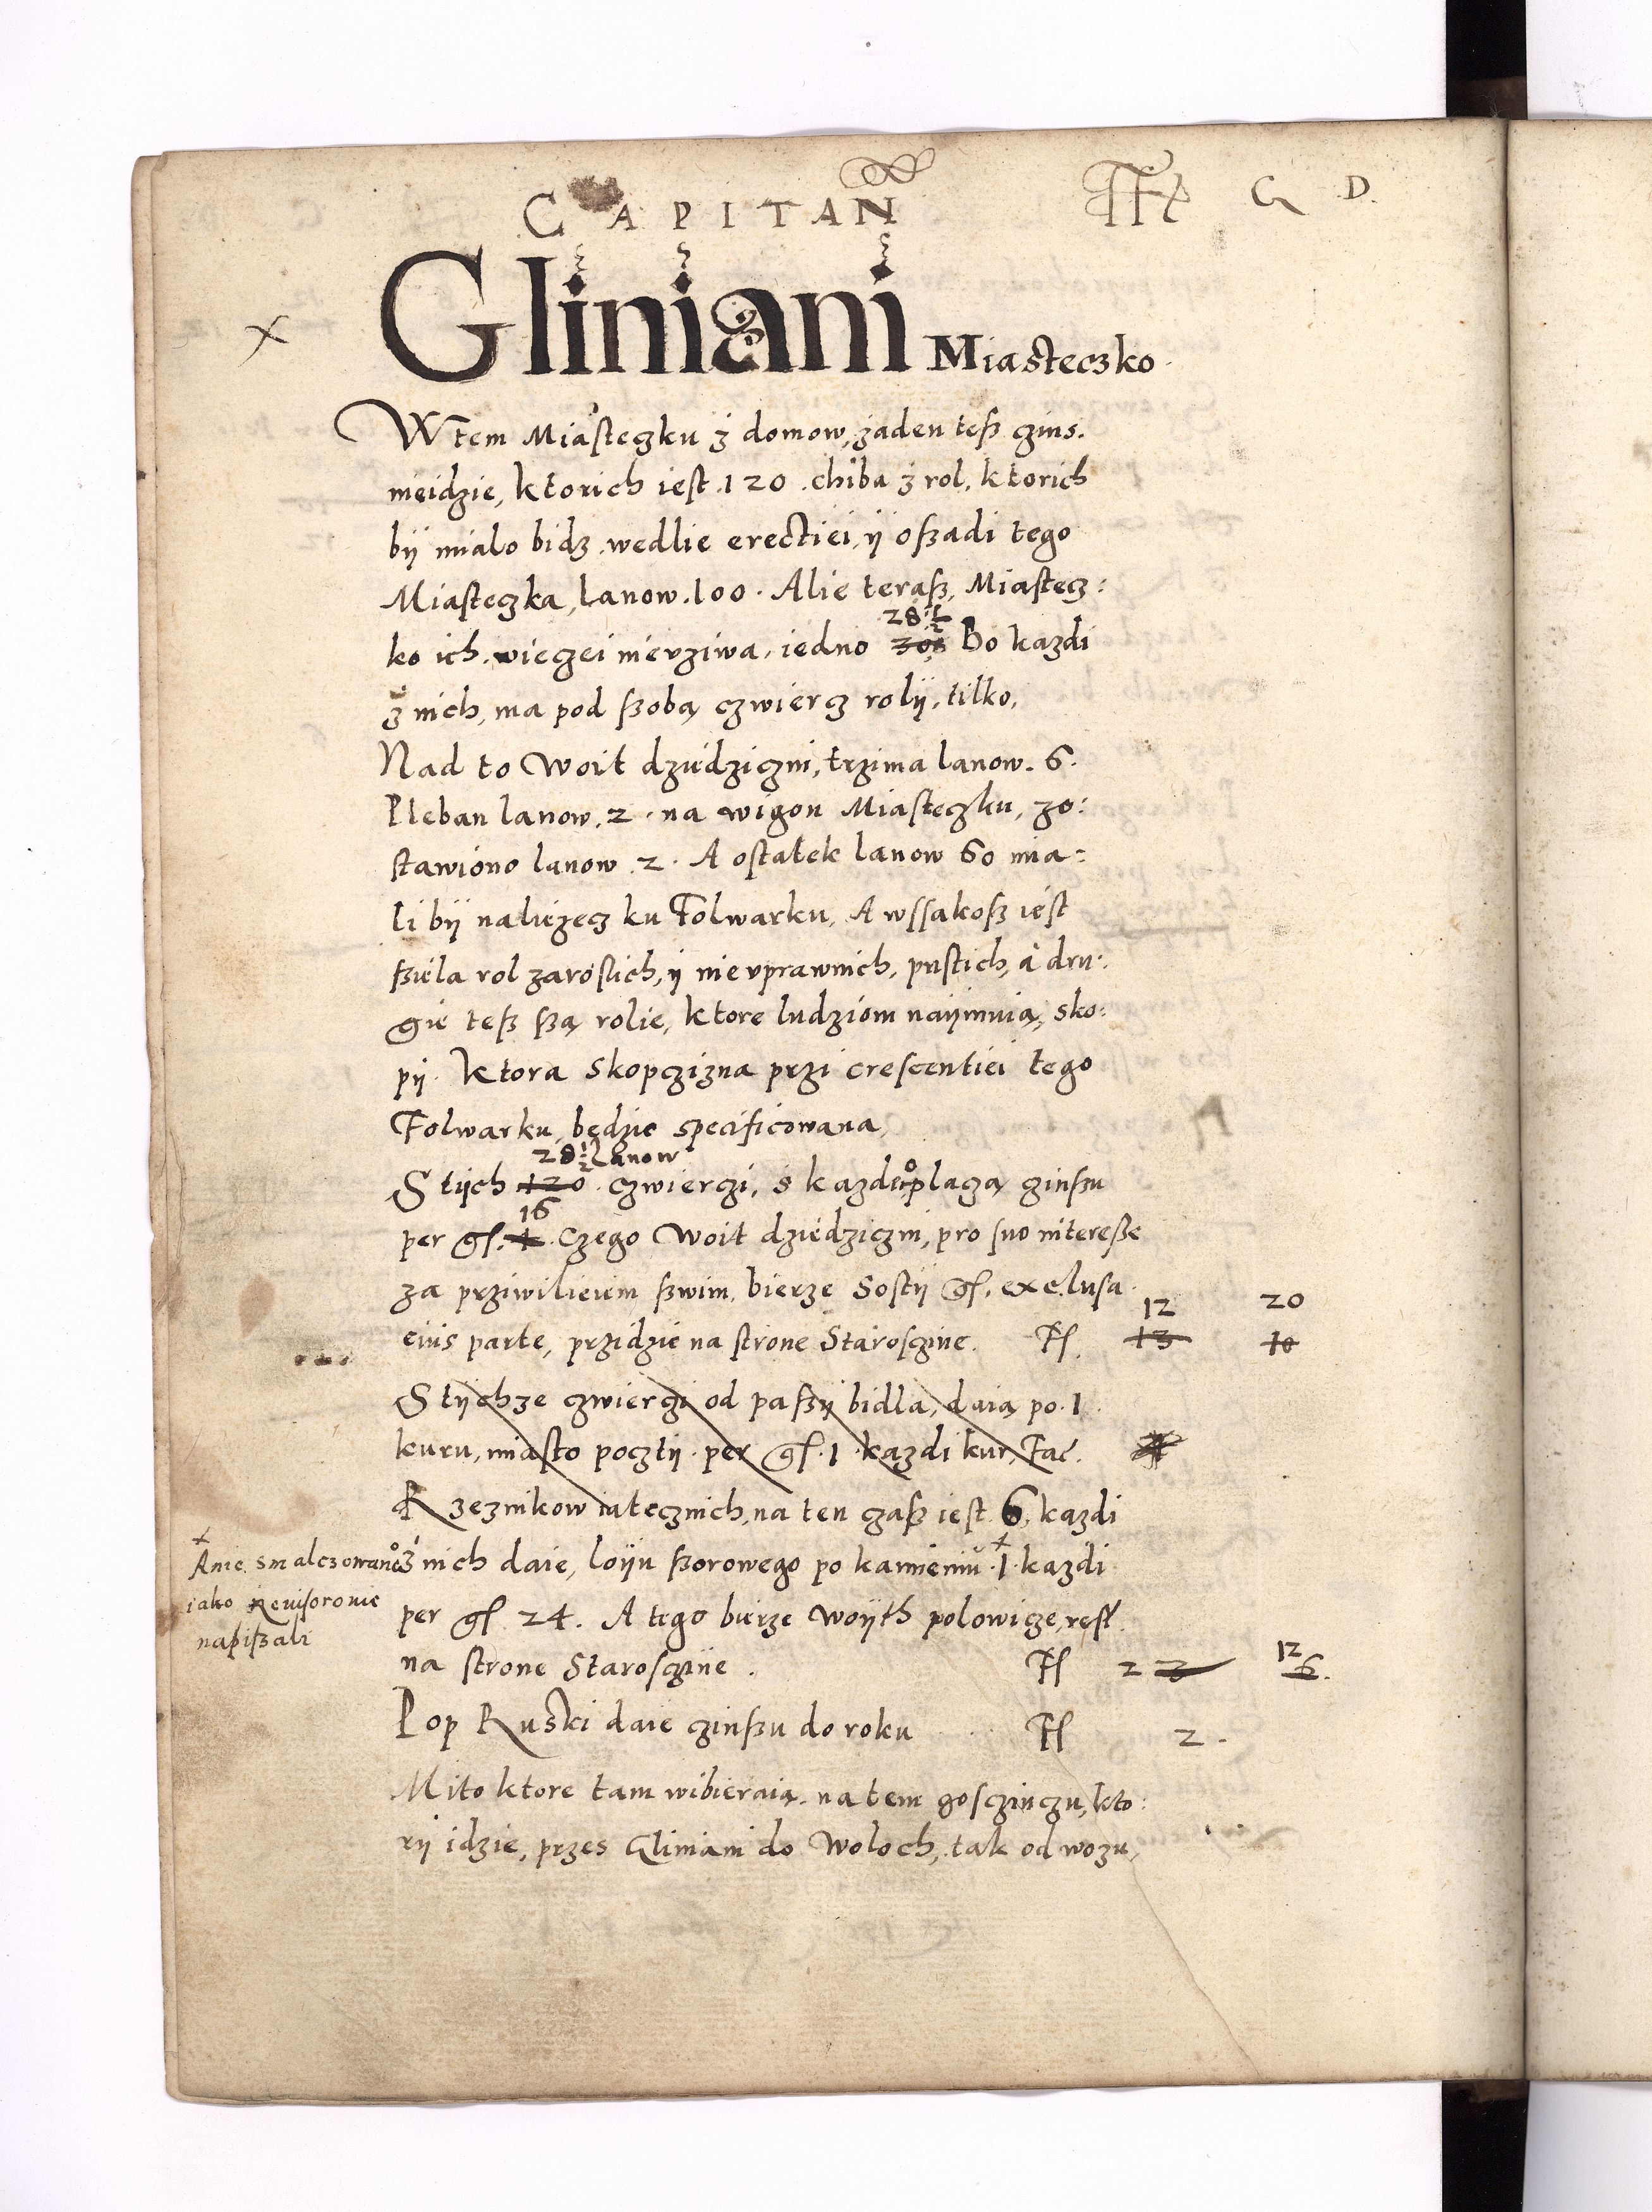 CAPITAN Fl G D.
Gliniani Miasteczko.
W tem Miasteczku z domow, zaden tesß czins.
nieidzie, ktorich iest .120. chiba z rol, ktorich
bÿ mialo bidz wedlie erectiei, ÿ osßadi tego
Miasteczka, lanow .100. Alie terasß, Miastecz:
28 1/2
ko ich wieczei nievziwa, iedno 30 Bo kazdi
z nich, ma pod sßobą czwiercz rolÿ, tilko,
Nad to Woit dziedziczni, trzima lanow. 6.
Pleban lanow. 2. na wigon Miasteczku, zo:
stawiono lanow .2. A ostatek lanow 60 mia:
li bÿ należecz ku Folwarku, A wssakosß iest
sßiela rol zarostich, ÿ nievprawnich, pustich, a dru:
gie tesß sßą rolie, ktore ludziom naÿmuią, sko:
pÿ. Ktora skopczizna przi crescentiei tego
Folwarku, będzie specificowana,
28 1/2 lanow
S tÿch 120. czwierci, s kazdeº placzą czinsßu
16
per gſ. 1. Czego Woit dziedziczni, pro suo interesse
za prziwilieiem sßwim, bierze Sostÿ gſ. exclusa
12 20
eius parte, przidzie na strone Starosczine. Fſ. 13 10
S tÿchze czwierczi od pasßÿ bidla, daią po .1.
kuru, miasto pocztÿ. per gſ. 1. kazdi kur, Fac.
Rzeznikow iatecznich, na ten czasß iest 6. kazdi
z nich daie, loÿu sßorowego po kamieniu .1. kazdi
Anie smalczowaneº
iako Reuisorowie
napisßali
per gſ 24. A tego bierze woÿth polowicze, rest
12
na strone Starosczine. Fſ 2 3 6.
Pop Ruski daie czinsßu do roku Fſ 2.
Mito ktore tam wibieraią. na tem gosczinczu, kto:
rÿ idzie, przes Gliniani do Woloch, tak od wozu,